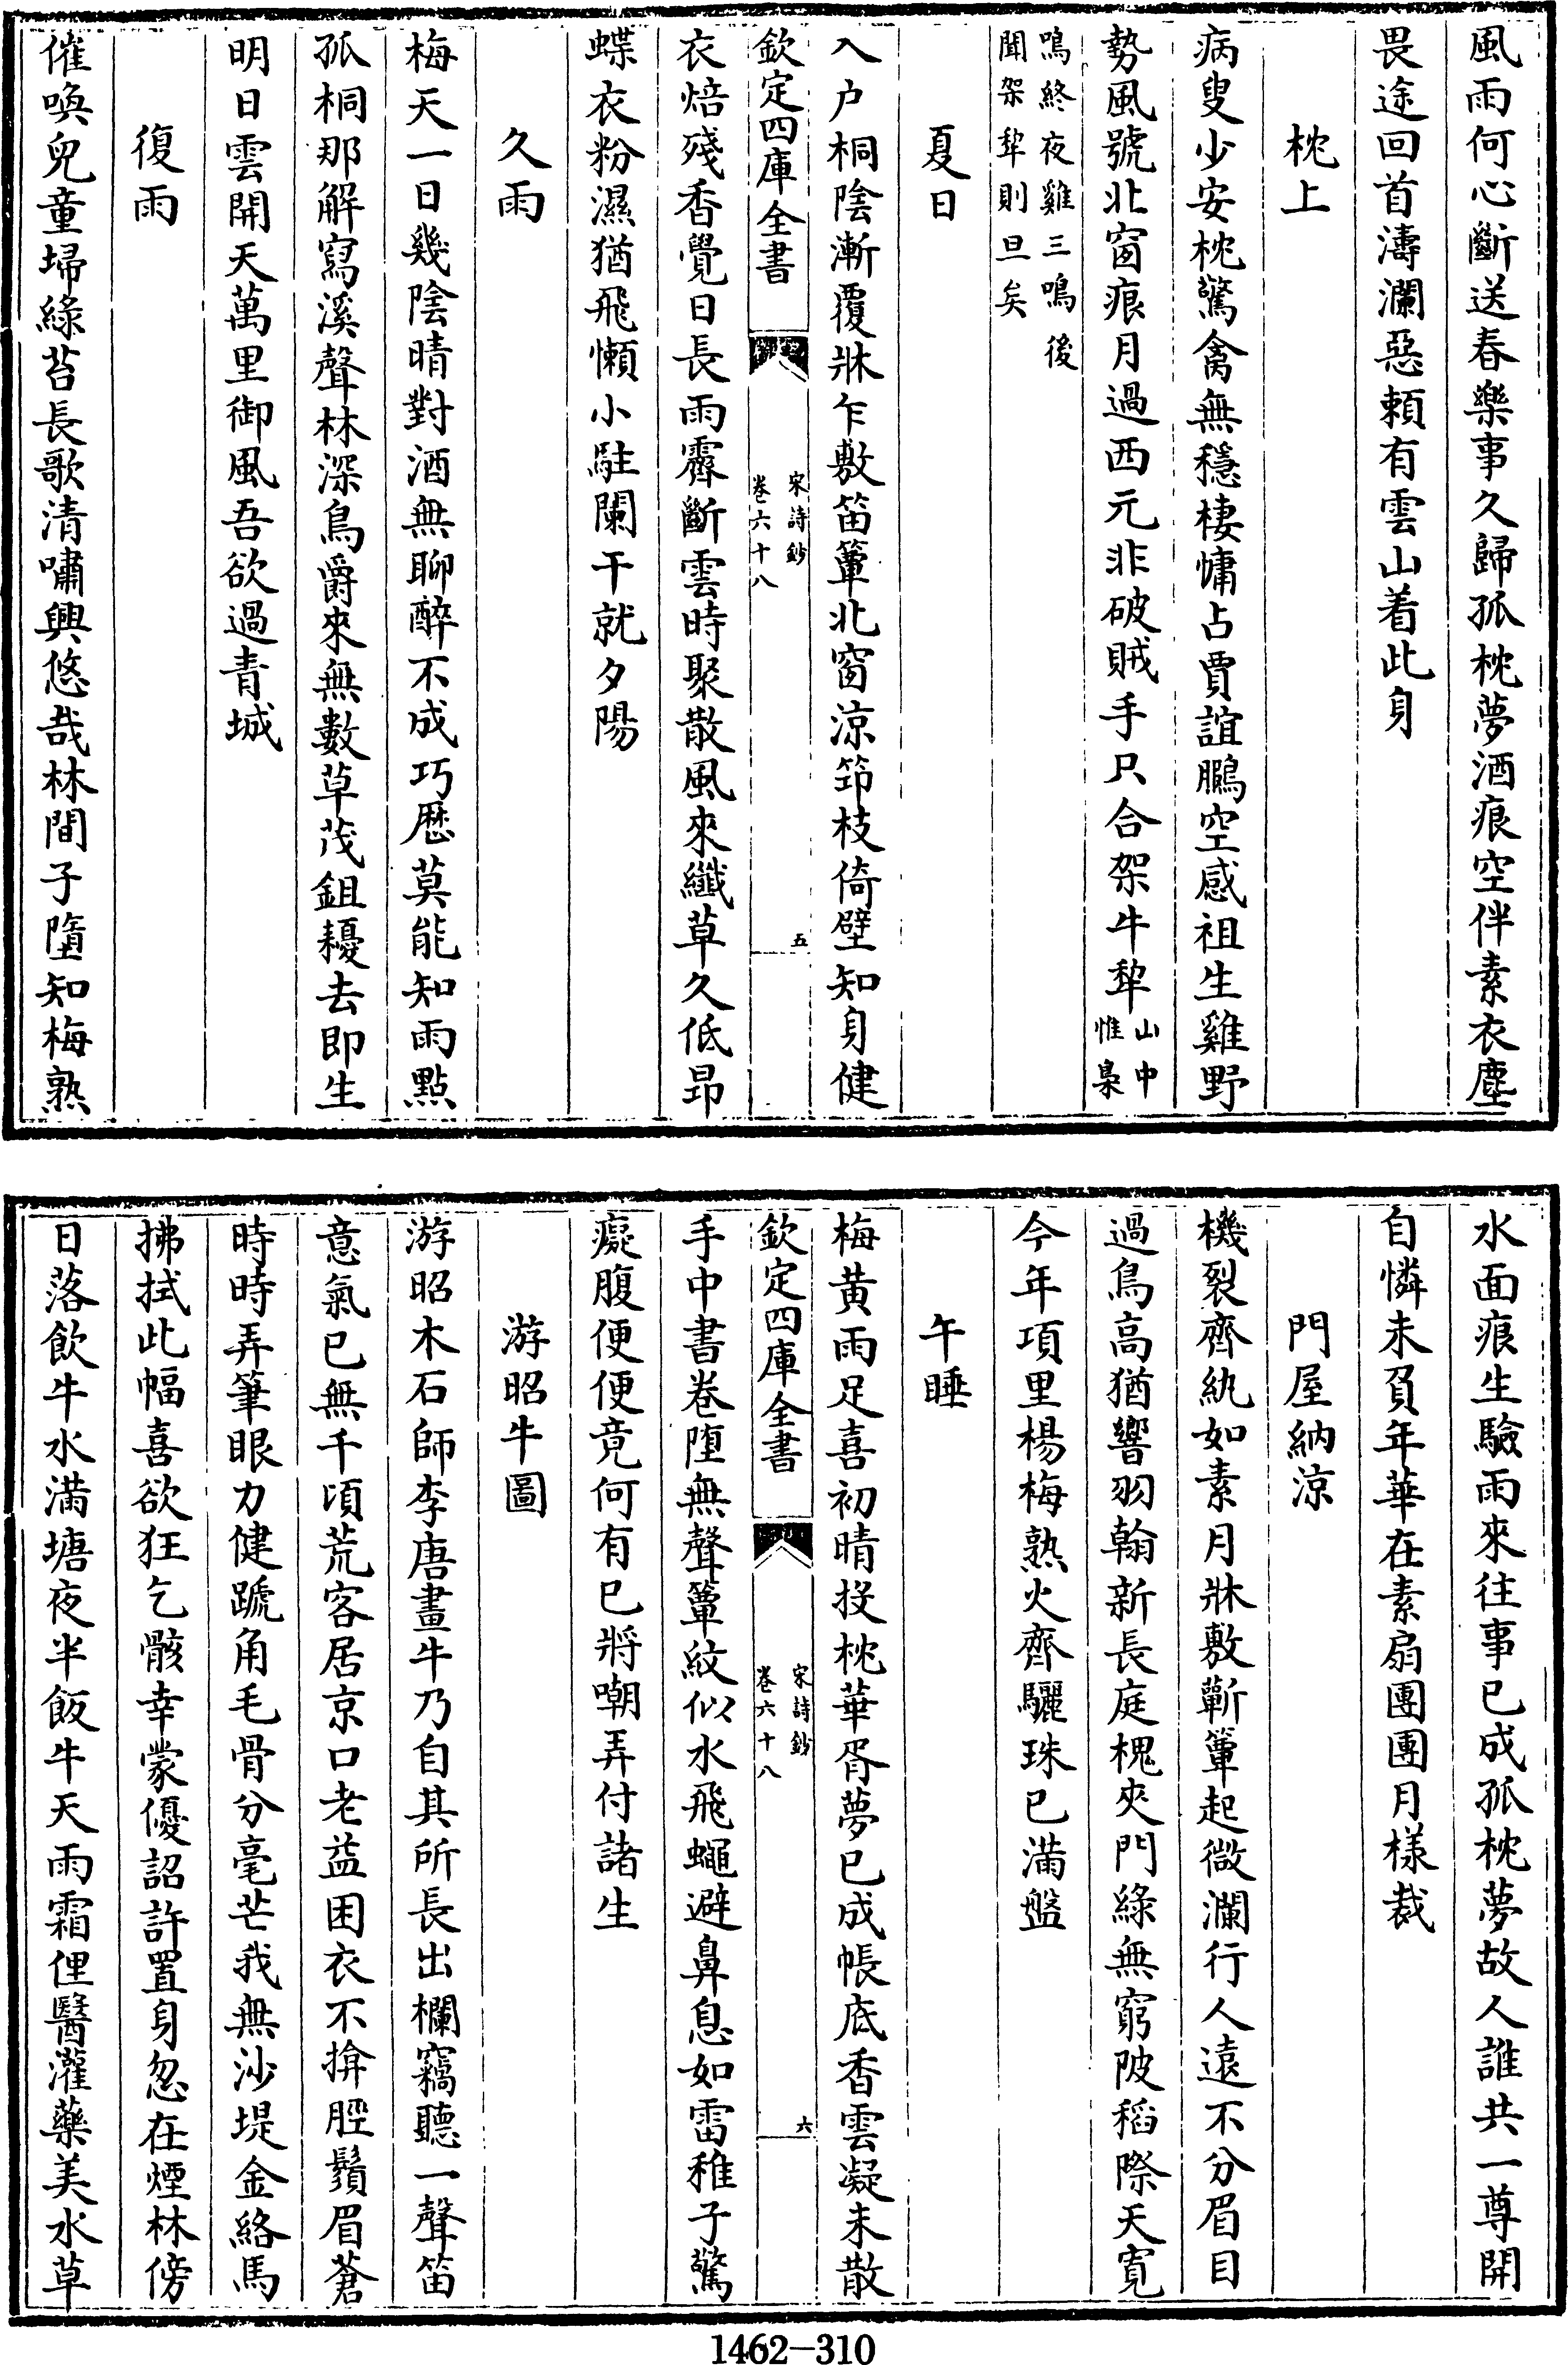 風雨何心斷送春樂事久歸孤枕夢酒痕空伴素衣塵
畏途回首濤瀾惡頼有雲山着此身
枕上
病叟少安枕驚禽無穩棲慵占賈誼鵬空感祖生雞野
勢風號北窗痕月過西元非破賊手只合架牛犂山中惟梟
鳴終夜雞三鳴後聞架犂則旦矣
夏日
入户桐陰漸覆牀乍敷笛簟北窗涼笻枝倚壁知身健
欽定四庫全書
宋詩鈔
卷六十八
五
衣焙殘香覺日長雨霽斷雲時聚散風來纖草久低昻
蝶衣粉濕猶飛懶小駐闌干就夕陽
久雨
梅天一日幾陰晴對酒無聊醉不成巧歴莫能知雨點
孤桐那解寫溪聲林深鳥爵來無數草茂鉏耰去即生
明日雲開天萬里御風吾欲過青城
復雨
催喚兒童埽緑苔長歌清嘯興悠哉林間子墮知梅熟
水面痕生驗雨來往事已成孤枕夢故人誰共一尊開
自憐未負年華在素扇團團月樣裁
門屋納涼
機裂齊紈如素月牀敷蘄簟起微瀾行人遠不分眉目
過鳥高猶響羽翰新長庭槐夾門緑無窮陂稻際天寛
今年項里楊梅熟火齊驪珠已滿盤
午睡
梅黄雨足喜初晴投枕華胥夢已成帳底香雲凝未散
欽定四庫全書
宋詩鈔
卷六十八
六
手中書卷墮無聲簟紋似水飛蠅避鼻息如雷稚子驚
癡腹便便竟何有已將嘲弄付諸生
游昭牛圖
游昭木石師李唐畫牛乃自其所長出欄竊聽一聲笛
意氣已無千頃荒客居京口老益困衣不揜脛鬚眉蒼
時時弄筆眼力健蹏角毛骨分毫芒我無沙堤金絡馬
拂拭此幅喜欲狂乞骸幸蒙優詔許置身忽在煙林傍
日落飲牛水滿塘夜半飯牛天雨霜俚醫灌藥美水草
1462-310